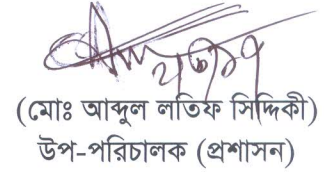 (মোঃ আব্দুল লতিফ সিদ্দিকী)
উপ-পরিচালক (প্রশাসন)